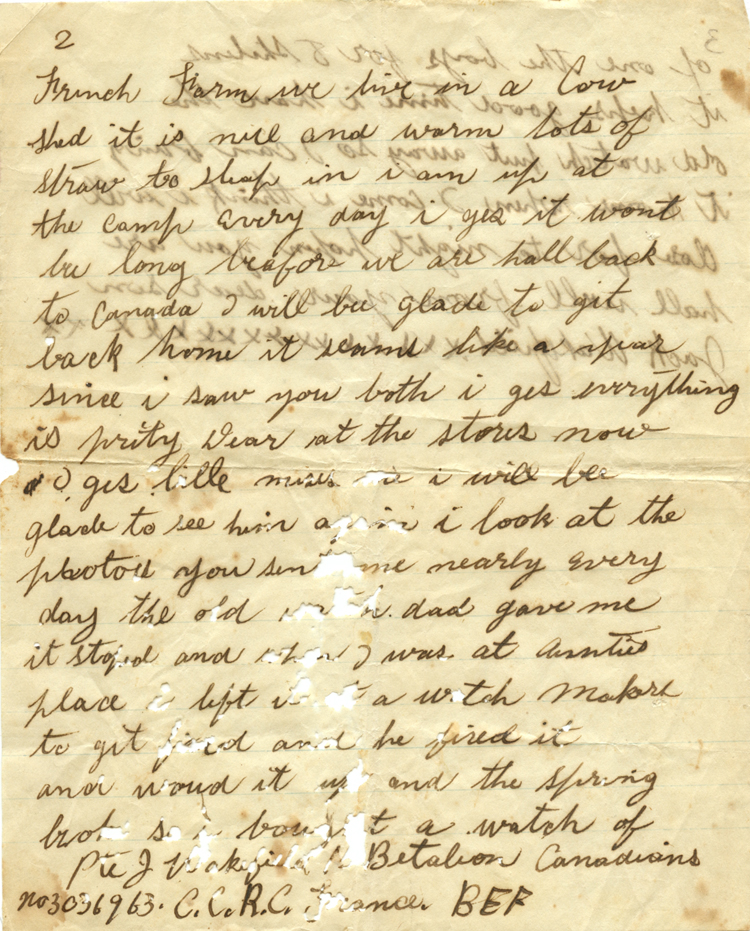 2
French Farm we live in a Cow
shed it is nice and warm lots of
straw to sleap in i am up at
the camp every day i ges it wont
be long beafore we are hall back
to Canada I will be glade to git
back home it seams like a year
since i saw you both i ges everything
is prity dear at the stores now
I ges lille miss me i will be
glade to see him again i look at the
photos you sent me nearly every
day the old dad gave me
it stoped and when I was at Aunties
place i left it at a watch makers
to git fixed and he fixed it
and woud it up and the spring
broke so i bought a watch of
Pte J Wakefield Betalion Canadians
no 3036963. C.C.R.C. France. BEF
3
of one the boys for 5 shilens